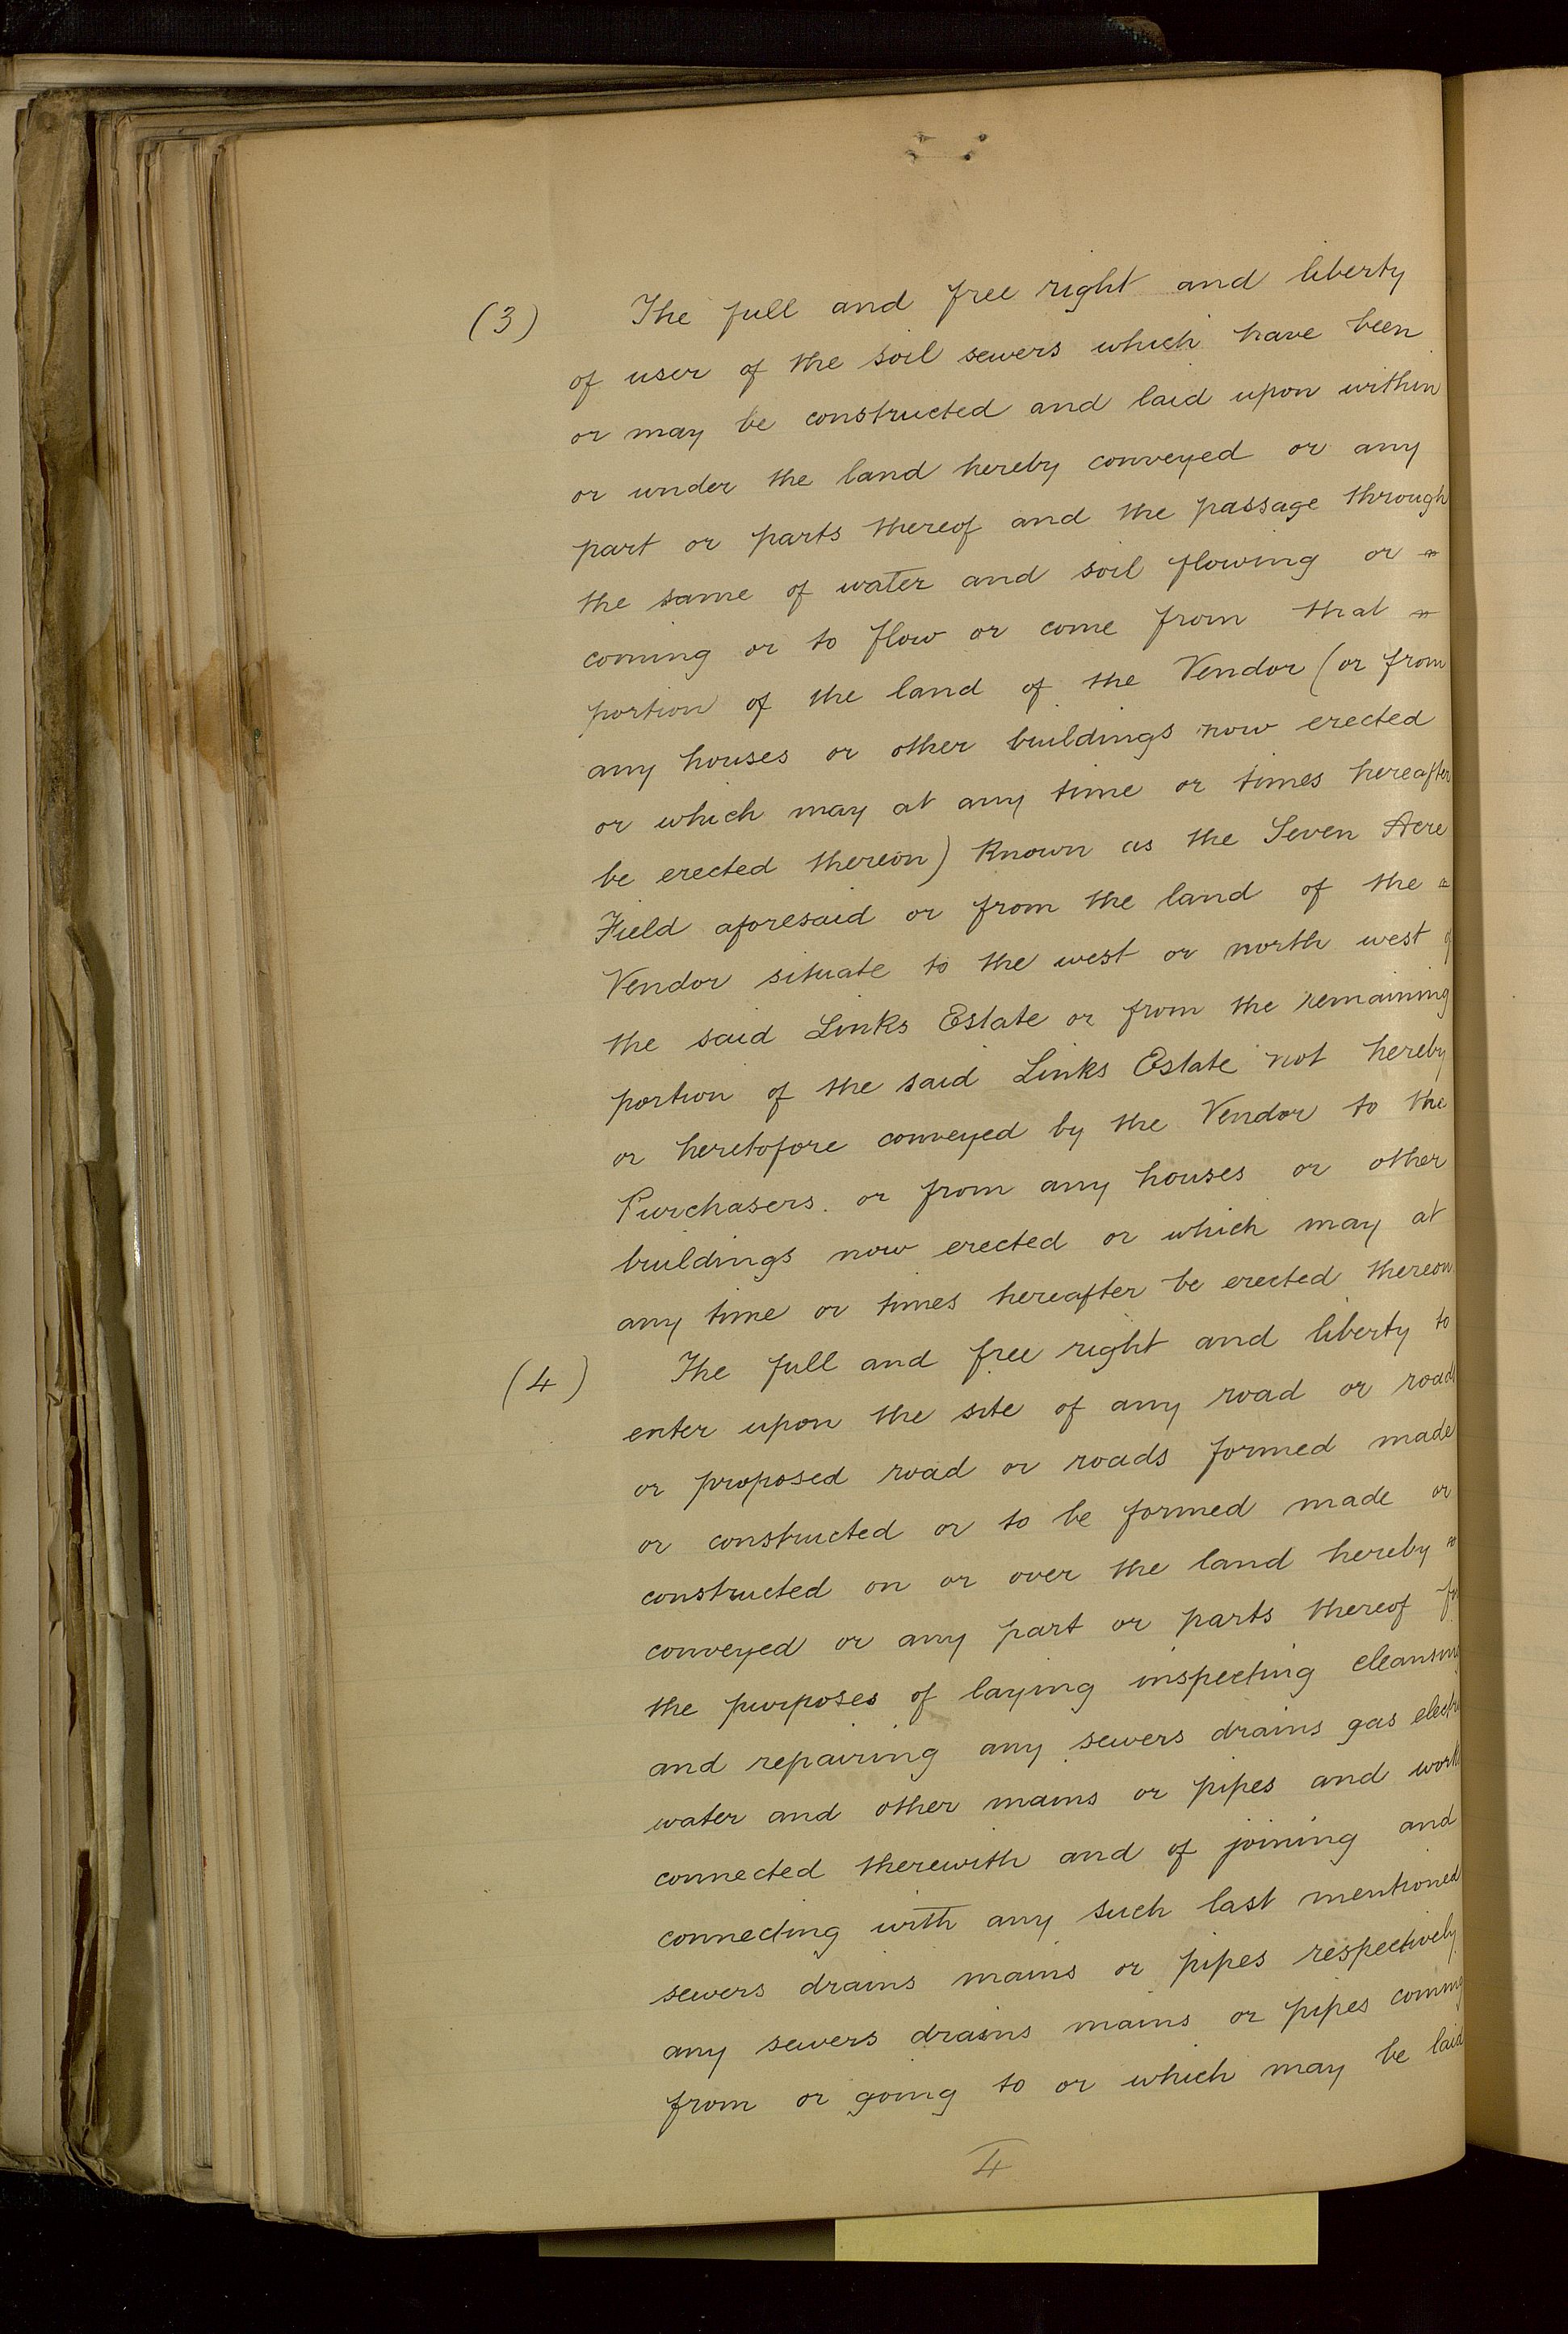 (3) The full and free right and liberty
of user of the soil sewers which have been
or may be constructed and laid upon within
or under the land hereby conveyed or any
part or parts thereof and the passage through
the same of water and soil flowing or
coming or to flow or come from that
portion of the land of the Vendor (or from
any houses or other buildings now erected
or which may at any time or times hereafter
be erected thereon) known as the Seven Acre
Field aforesaid or from the land of the
Vendor situate to the west or north west
the said Links Estate or from the remaining
portion of the said Links Estate not hereby
or heretofore conveyed by the Vendor to the
Purchasers. or from any houses or other
buildings now erected or which may at
any time or times hereafter be erected thereon.
(4) The full and free right and liberty to
enter upon the site of any road or roads
or proposed road or roads formed made
or constructed or to be formed made or
constructed on or over the land hereby
conveyed or any part or parts thereof
the purposes of laying inspecting cleansing
and repairing any sewers drains gas
water and other mains or pipes and
connected therewith and of joining and
connecting with any such last mentioned
sewers drains mains or pipes respectively
any sewers drains mains or pipes coming
from or going to or which may be laid
4